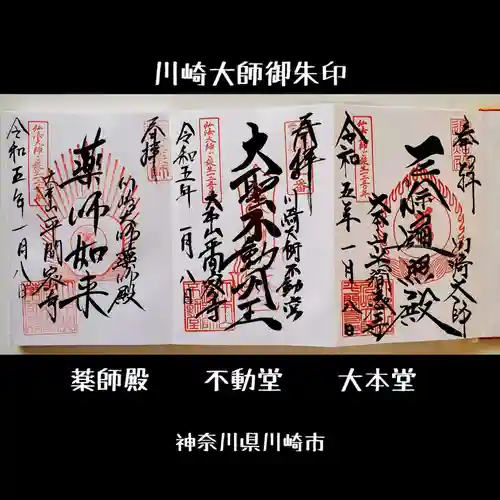 川崎大師御朱印
奉拝
川崎大師薬師殿
薬師如来
大本山平間寺
令和五年一月八日
奉拝
川崎大師不動堂
大聖不動明王
大本山平間寺
令和五年一月八日
奉拝
川崎大師
遍照殿
大本山平間寺
令和五年一月八日
薬師殿
不動堂
大本堂
神奈川県川崎市